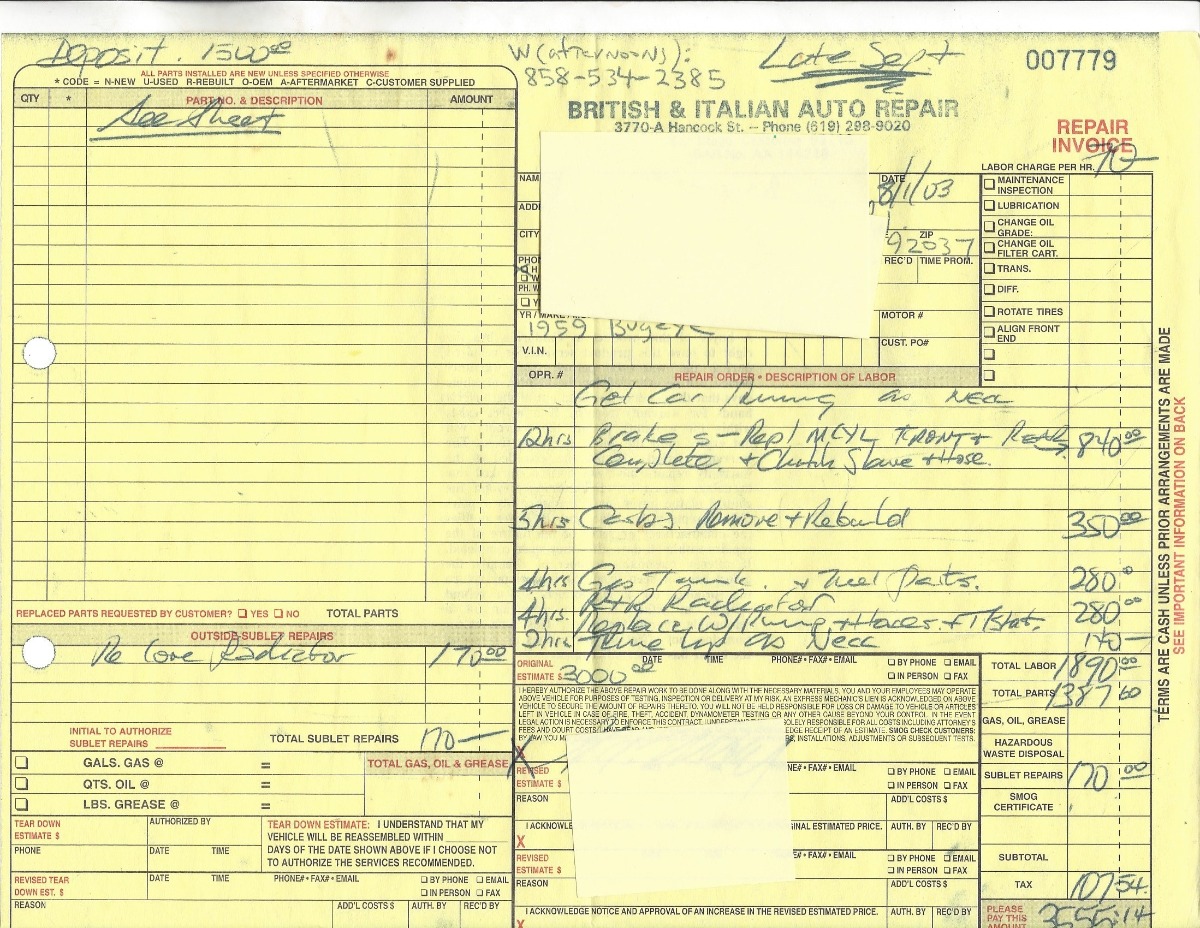 Deposit. 1500.00
W (afternoons):
858-534-2385
Late Sept
007779
ALL PARTS INSTALLED ARE NEW UNLESS SPECIFIED OTHERWISE
* CODE = N-NEW U-USED R-REBUILT O-OEM A-AFTERMARKET C-CUSTOMER SUPPLIED
QTY * PART NO. & DESCRIPTION AMOUNT
See Sheet
BRITISH & ITALIAN AUTO REPAIR
3770-A Hancock St. -- Phone (619) 298-9020
REPAIR
INVOICE
LABOR CHARGE PER HR. 70-
NAM
DATE
8/1/03
ADD
CITY
ZIP
92037
PHO
H
W
REC'D TIME PROM.
PH. W
YR / MAKE / MO
1959 Bugeye
MOTOR #
V.I.N.
CUST. PO#
MAINTENANCE
INSPECTION
LUBRICATION
CHANGE OIL
GRADE:
CHANGE OIL
FILTER CART.
TRANS.
DIFF.
ROTATE TIRES
ALIGN FRONT
END
OPR. # REPAIR ORDER • DESCRIPTION OF LABOR
Get Car Running as Necc
12hrs Brakes - Repl M/CYL FRONT + REAR 840.00
Complete. + Clutch Slave + Hose.
5hrs Carbs. Remove + Rebuild 350.00
4hrs Gas Tank. + Fuel Parts. 280.0
4hrs R+R Radiator 280.00
Replace W/Pump + Hoses + T/Stat.
2hrs Tune up as Necc 140-
REPLACED PARTS REQUESTED BY CUSTOMER? YES NO TOTAL PARTS
OUTSIDE-SUBLET REPAIRS
Re Core Radiator 170.00
INITIAL TO AUTHORIZE
SUBLET REPAIRS
TOTAL SUBLET REPAIRS 170-
GALS. GAS @ =
QTS. OIL @ =
LBS. GREASE @ =
TOTAL GAS, OIL & GREASE
TEAR DOWN
ESTIMATE $
AUTHORIZED BY
PHONE DATE TIME
TEAR DOWN ESTIMATE: I UNDERSTAND THAT MY
VEHICLE WILL BE REASSEMBLED WITHIN
DAYS OF THE DATE SHOWN ABOVE IF I CHOOSE NOT
TO AUTHORIZE THE SERVICES RECOMMENDED.
REVISED TEAR
DOWN EST. $
DATE TIME PHONE# • FAX# • EMAIL BY PHONE EMAIL
IN PERSON FAX
REASON ADD'L COSTS $ AUTH. BY REC'D BY
ORIGINAL
ESTIMATE $ 3000.00
DATE TIME PHONE# • FAX# • EMAIL BY PHONE EMAIL
IN PERSON FAX
I HEREBY AUTHORIZE THE ABOVE REPAIR WORK TO BE DONE ALONG WITH THE NECESSARY MATERIALS, YOU AND YOUR EMPLOYEES MAY OPERATE
ABOVE VEHICLE FOR PURPOSES OF TESTING, INSPECTION OR DELIVERY AT MY RISK. AN EXPRESS MECHANIC'S LIEN IS ACKNOWLEDGED ON ABOVE
VEHICLE TO SECURE THE AMOUNT OF REPAIRS THERETO. YOU WILL NOT BE HELD RESPONSIBLE FOR LOSS OR DAMAGE TO VEHICLE OR ARTICLES
LEFT IN VEHICLE IN CASE OF FIRE, THEFT, ACCIDENT, DYNAMOMETER TESTING OR ANY OTHER CAUSE BEYOND YOUR CONTROL. IN THE EVENT
LEGAL ACTION IS NECESSARY TO ENFORCE THIS CONTRACT, I UNDERSTAND SOLELY RESPONSIBLE FOR ALL COSTS INCLUDING ATTORNEY'S
FEES AND COURT COSTS EDGE RECEIPT OF AN ESTIMATE. SMOG CHECK CUSTOMERS:
BY LAW YOU S, INSTALLATIONS, ADJUSTMENTS OR SUBSEQUENT TESTS.
X
REVISED
ESTIMATE $
NE# • FAX# • EMAIL BY PHONE EMAIL
IN PERSON FAX
REASON ADD'L COSTS $
I ACKNOWLE GINAL ESTIMATED PRICE. AUTH. BY REC'D BY
X
REVISED
ESTIMATE $
E# • FAX# • EMAIL BY PHONE EMAIL
IN PERSON FAX
REASON ADD'L COSTS $
I ACKNOWLEDGE NOTICE AND APPROVAL OF AN INCREASE IN THE REVISED ESTIMATED PRICE. AUTH. BY REC'D BY
X
TOTAL LABOR 1890.00
TOTAL PARTS 1387 60
GAS, OIL, GREASE
HAZARDOUS
WASTE DISPOSAL
SUBLET REPAIRS 170 00
SMOG
CERTIFICATE
SUBTOTAL
TAX 107.54
PLEASE
PAY THIS
AMOUNT 3555.14
TERMS ARE CASH UNLESS PRIOR ARRANGEMENTS ARE MADE
SEE IMPORTANT INFORMATION ON BACK